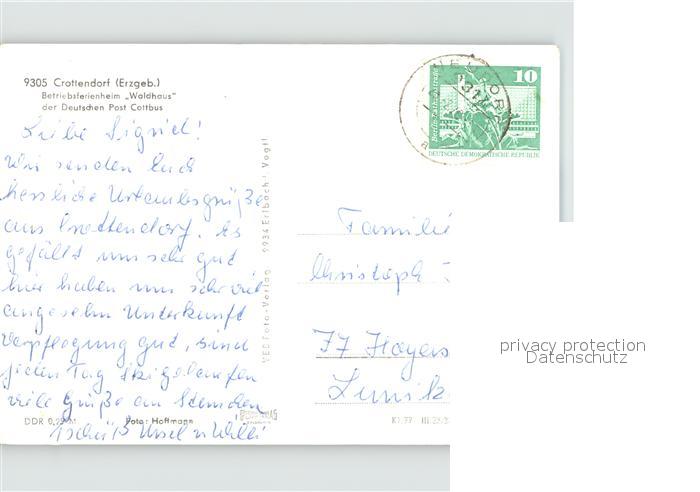 9305 Crottendorf (Erzgeb.)
Betriebsferienheim „Waldhaus"
der Deutschen Post Cottbus
Liebe Sigrid!
Wir senden Euch
herzliche Urlaubsgrüße
aus Crottendorf. Es
gefällt uns sehr gut
hier haben uns sehr viel
angesehn Unterkunft
Verpflegung gut, sind
jeden Tag Skigelaufen
viele Grüße an
Tschüß Ursel u Willi
DDR 0,25 M Foto: Hoffmann
VEB Foto-Verlag 9934 Erlbach i. Vogtl
10
DEUTSCHE DEMOKRATISCHE REPUBLIK
Familie
Christoph
77 Hoyers
privacy protection
Datenschutz